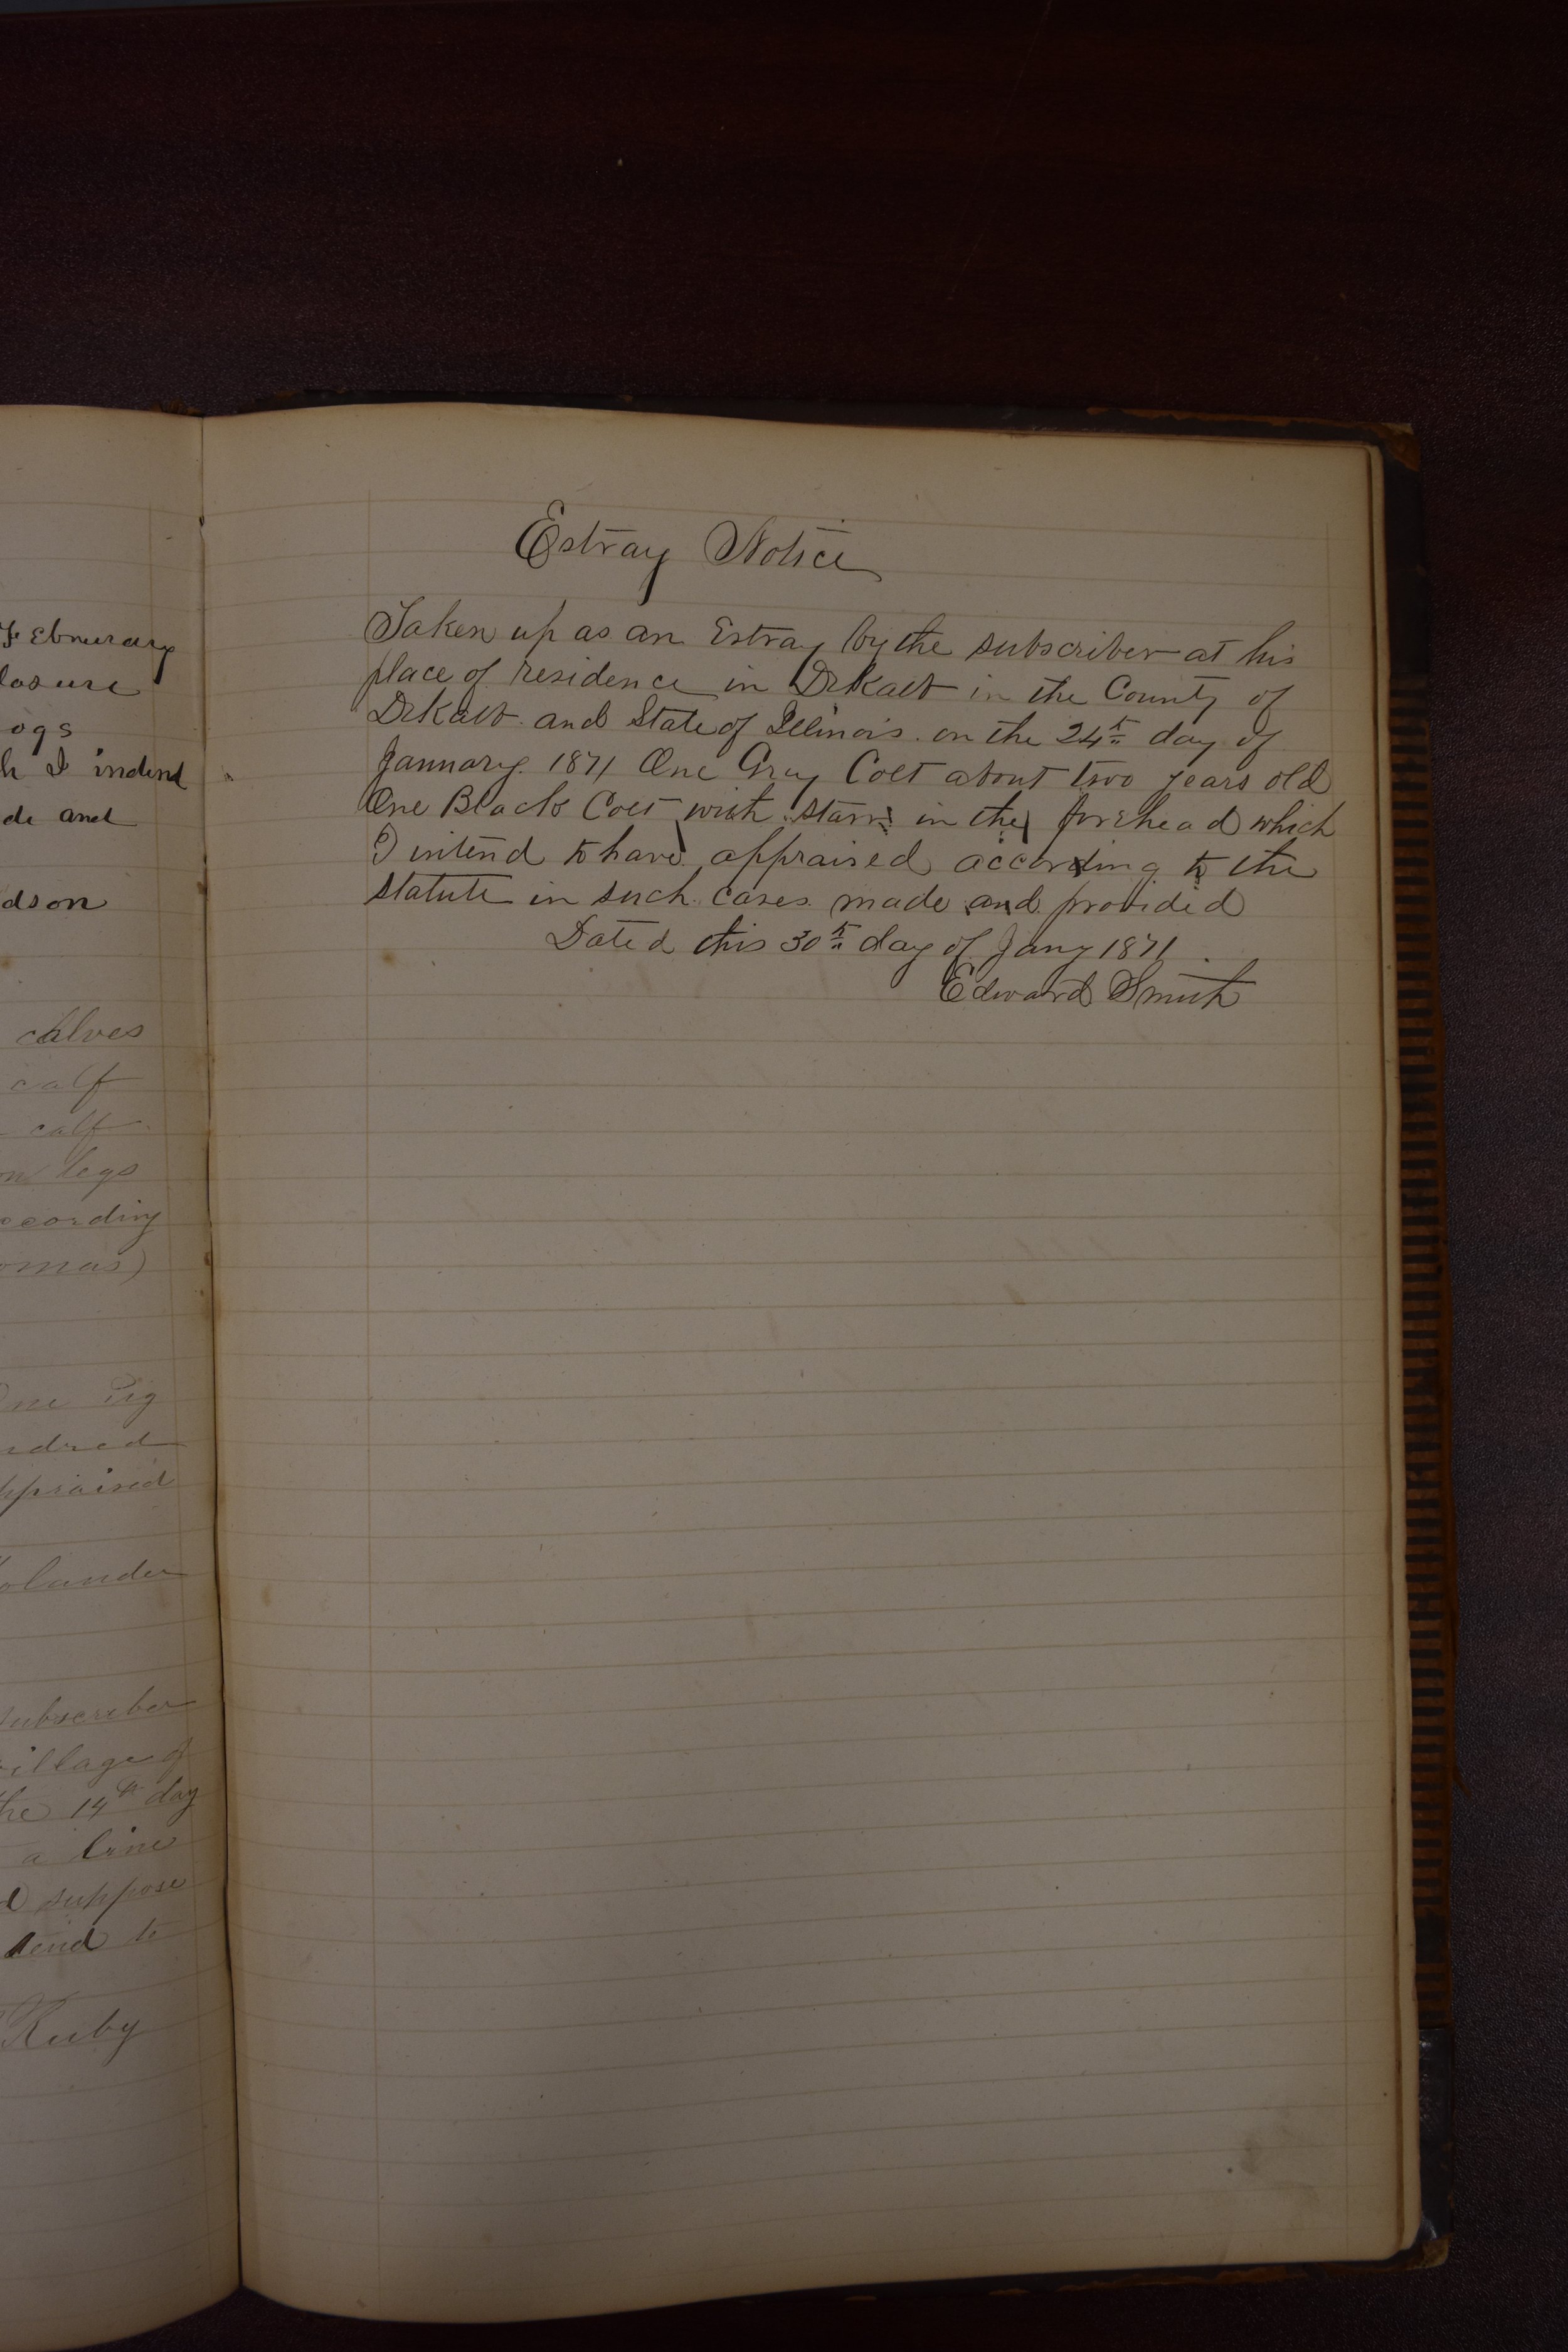 Febnurary
losure
ogs
h I indend
de and
dson
calves
calf
calf
on legs
ccording
omas)
One Pig
ndred
ppraised
olander
subscriber
village of
the 14th day
a line
d suppose
tend to
Ruby
Estray Notice
Taken up as an Estray by the subscriber at his
place of residence in DeKalb in the County of
DeKalb and State of Illinois on the 24th day of
January. 1871 One Gray Colt about two years old
One Black Colt with starr in the forehead which
I intend to have appraised according to the
statute in such cases made and provided
Dated this 30th day of Jany 1871.
Edward Smith